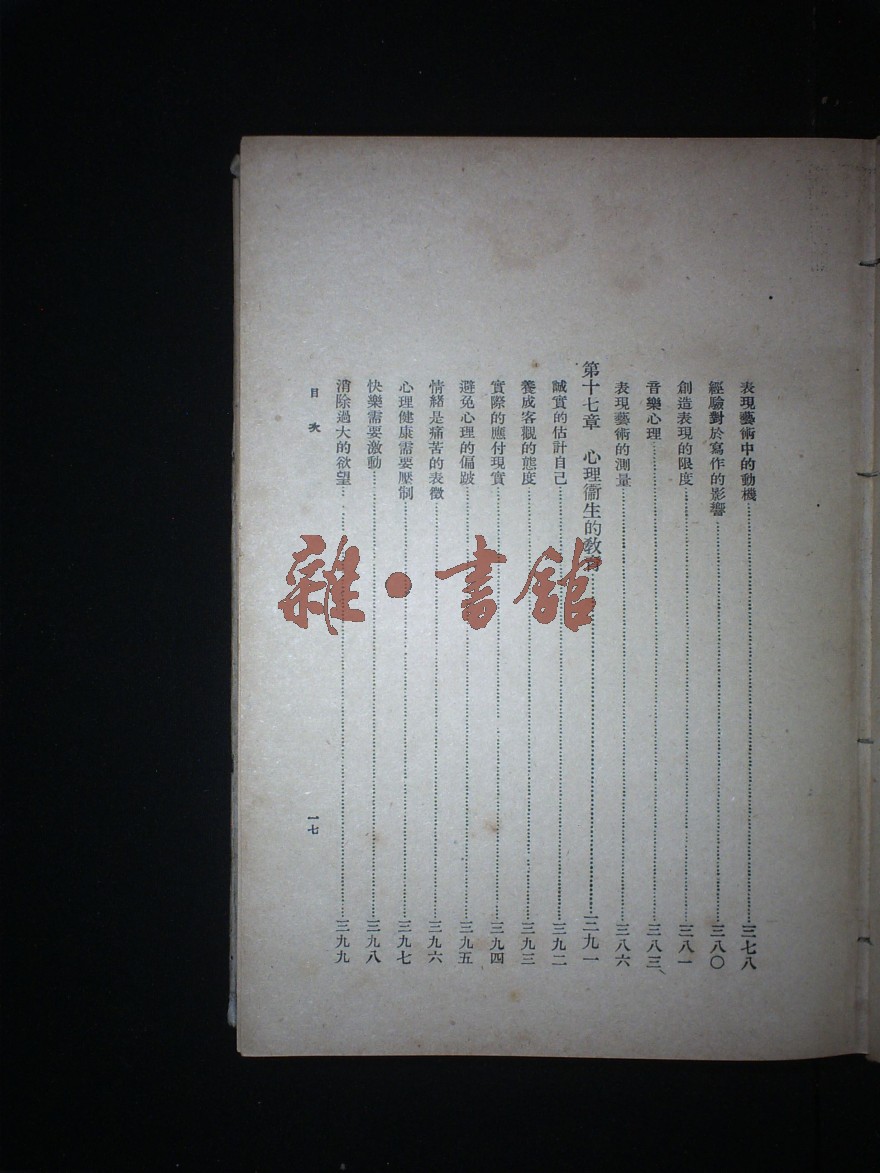 表現藝術中的動機……三七八
經驗對於寫作的影響……三八〇
創造表現的限度……三八一
音樂心理……三八三
表現藝術的測量……三八六
第十七章　心理衞生的敎育……三九一
誠實的估計自己……三九二
養成客觀的態度……三九三
實際的應付現實……三九四
避免心理的偏跛……三九五
情緒是痛苦的表徵……三九六
心理健康需要壓制……三九七
快樂需要激動……三九八
消除過大的欲望……三九九
目次
一七
雜·書館